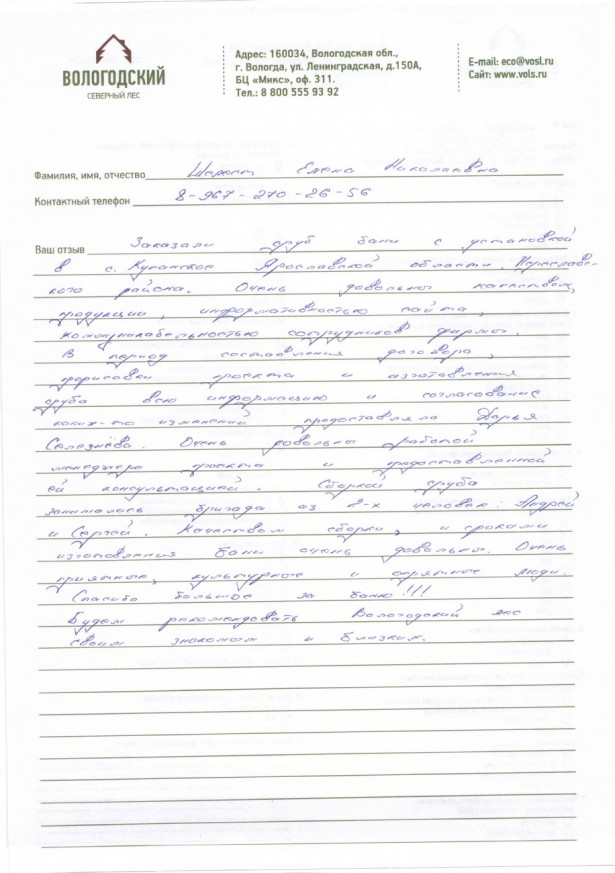 ВОЛОГОДСКИЙ
СЕВЕРНЫЙ ЛЕС
Адрес: 160034, Вологодская обл.,
г. Вологда, ул. Ленинградская, д.150А,
БЦ «Микс», оф. 311.
Тел.: 8 800 555 93 92
E-mail: eco@vosl.ru
Сайт: www.vols.ru
Фамилия, имя, отчество Елена Николаевна
Контактный телефон 8-967-270-26-56
Ваш отзыв Заказали сруб бани с установкой
в с. Купанское Ярославской области, Переславс-
кого района. Очень довольны качеством
продукции, информативностью сайта,
коммуникабельностью сотрудников фирмы.
В период составления договора,
прорисовки проекта и изготовления
сруба всю информацию и согласование
каких-то изменений предоставляла Дарья
Селезнёва. Очень довольны работой
менеджера проекта и предоставленной
ей консультацией. Сборкой сруба
занималась бригада из 2-х человек: Андрей
и Сергей. Качеством сборки, и сроками
изготовления бани очень довольны. Очень
приятные, культурные и опрятные люди.
Спасибо большое за баню!!!
Будем рекомендовать Вологодский лес
своим знакомым и близким.